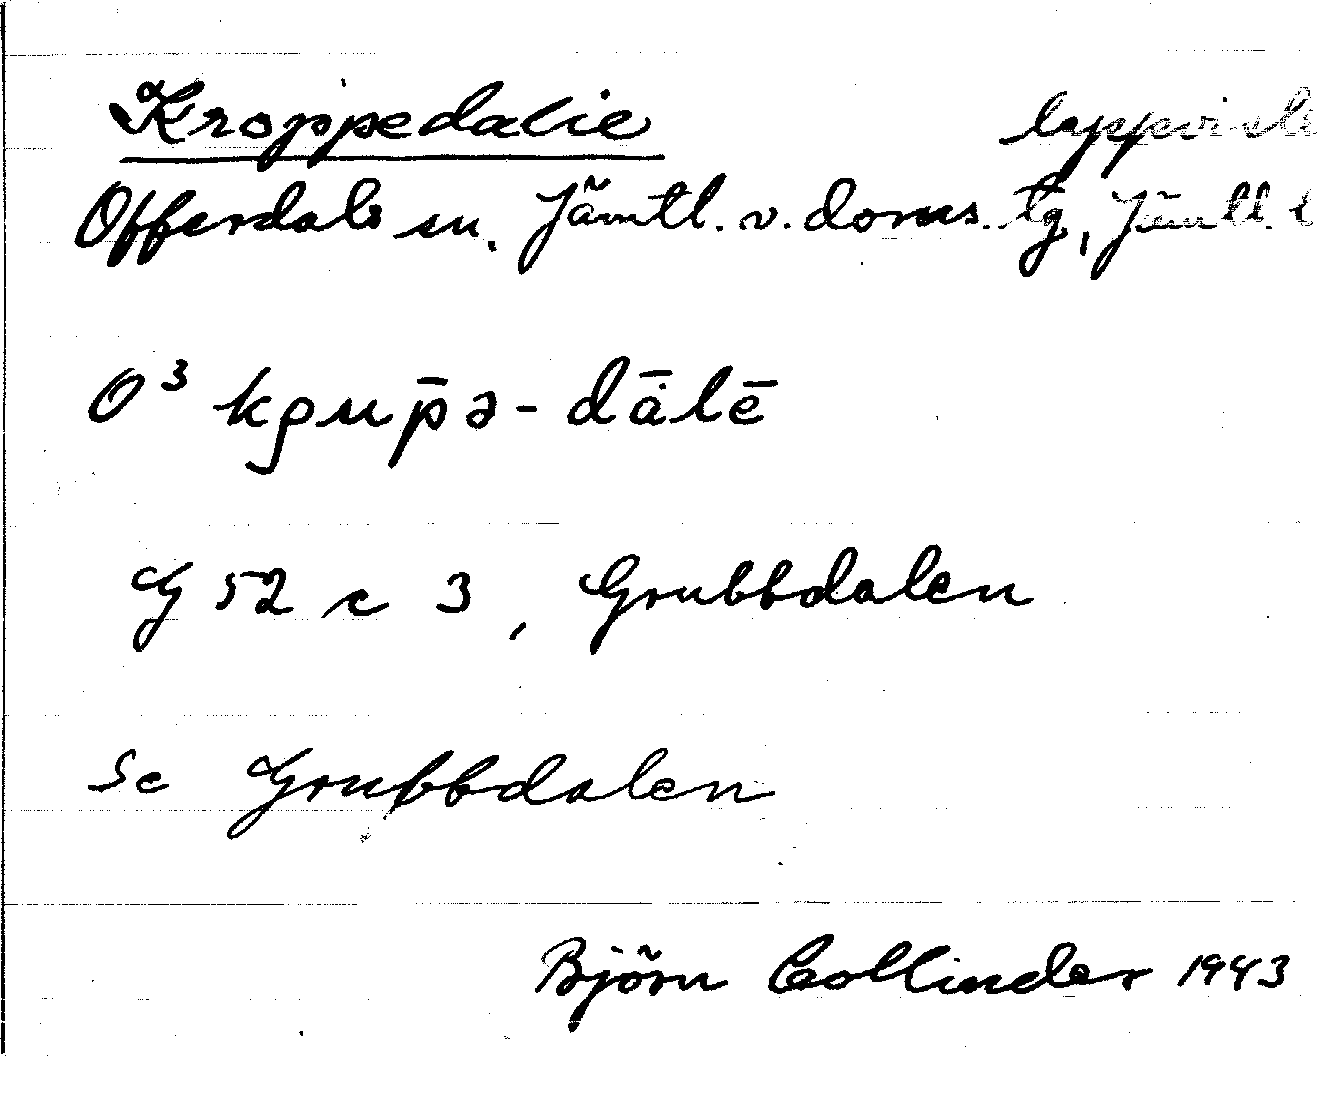 Kroppedalie lappviste
Offerdals sn. Jämtl. v. doms. tg, Jämtl. l
O³ kgup̄ə-dǡlē
G 52 c 3, Grubbdalen
Se Grubbdalen
Björn Collinder 1943